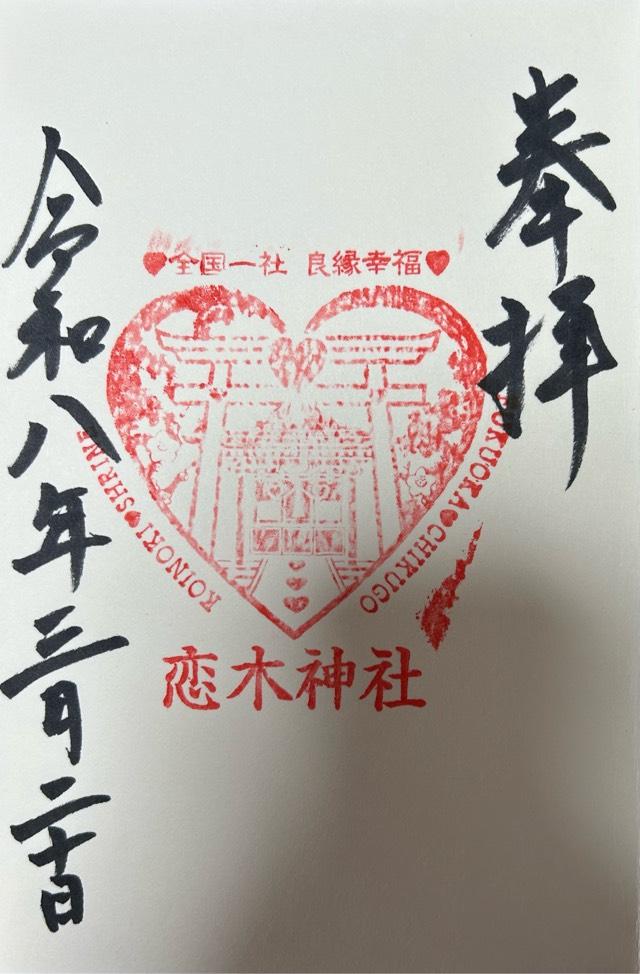 奉拝
全国一社 良縁幸福
KOINOKI♥SHRINE
FUKUOKA♥CHIKUGO
恋木神社
令和八年三月二十日